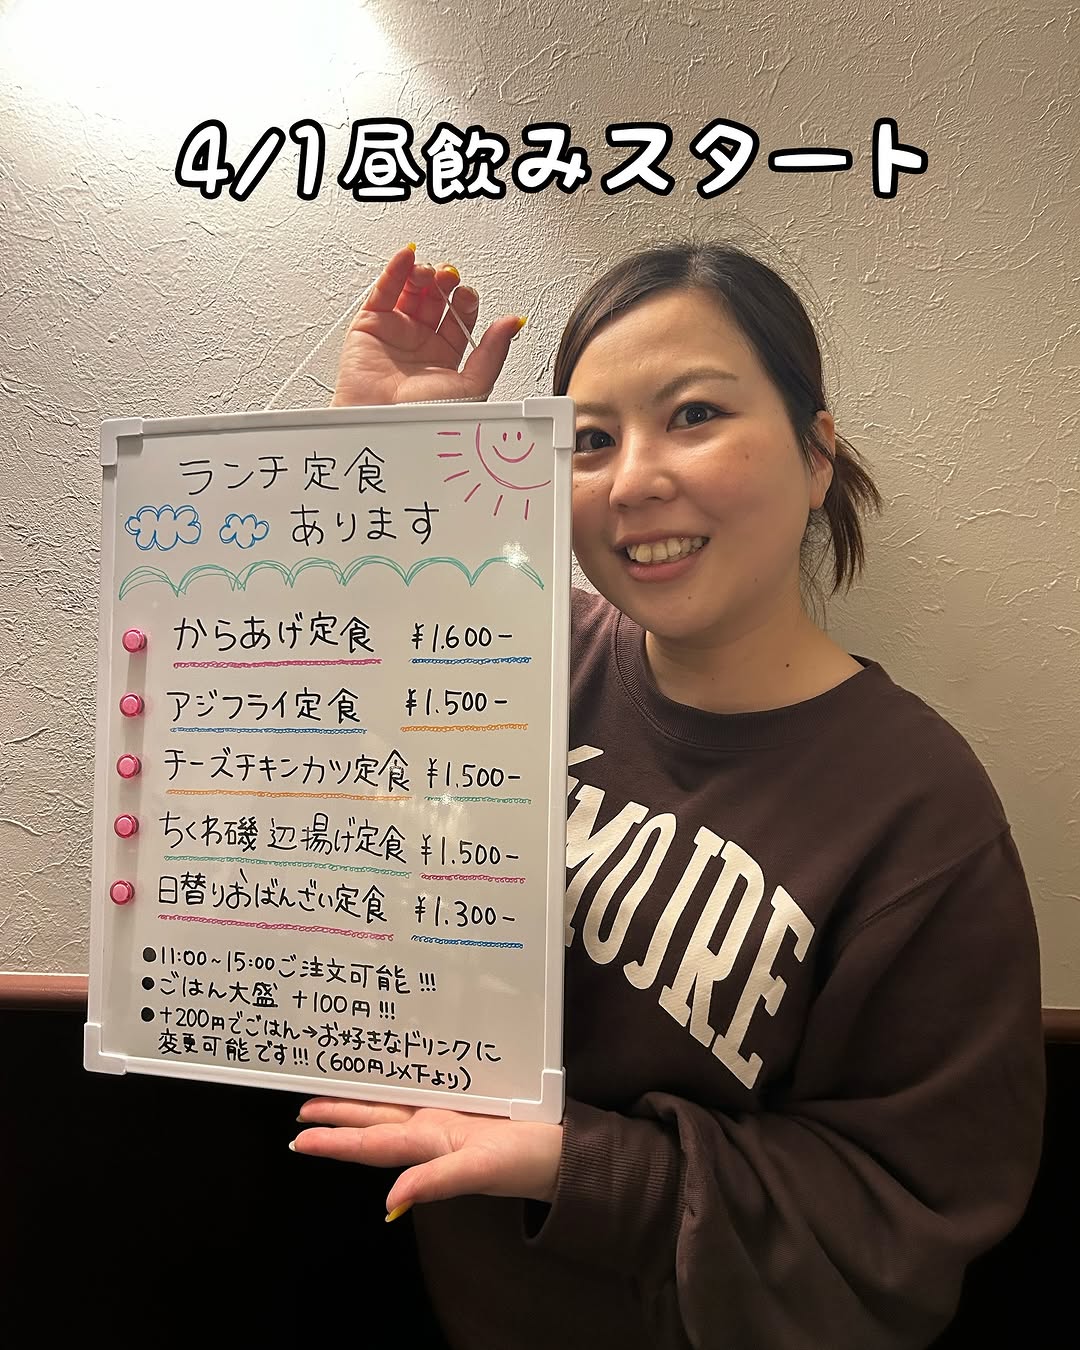 4/1昼飲みスタート
ランチ定食
あります
からあげ定食 ¥1.600-
アジフライ定食 ¥1.500-
チーズチキンカツ定食 ¥1.500-
ちくわ磯辺揚げ定食 ¥1.500-
日替りおばんざい定食 ¥1.300-
●11:00~15:00ご注文可能!!!
●ごはん大盛 +100円!!!
●+200円でごはん→お好きなドリンクに
変更可能です!!!(600円以下より)
MOIRE